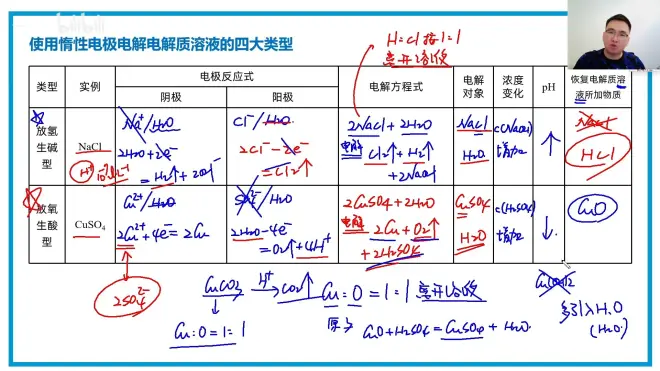 bilibili
使用惰性电极电解电解质溶液的四大类型
H:Cl 按1:1
离开溶液
类型 实例 电极反应式 电解方程式 电解对象 浓度变化 pH 恢复电解质溶液所加物质
阴极 阳极
放氢生碱型
NaCl
H⁺ 10⁻⁷mol·L⁻¹
Na⁺/H₂O
2H₂O+2e⁻
=H₂↑+2OH⁻
Cl⁻/H₂O
2Cl⁻-2e⁻
=Cl₂↑
2NaCl+2H₂O
电解 Cl₂↑+H₂↑
+2NaOH
NaCl
H₂O
c(NaOH)
增加
↑
NaCl
HCl
放氧生酸型
CuSO₄
Cu²⁺/H₂O
2Cu²⁺+4e⁻=2Cu
SO₄²⁻/H₂O
2H₂O-4e⁻
=O₂↑+4H⁺
2CuSO₄+2H₂O
电解 2Cu+O₂↑
+2H₂SO₄
CuSO₄
H₂O
c(H₂SO₄)
增加
↓
CuO
2SO₄²⁻
CuCO₃ H⁺ CO₂↑
Cu:O=1:1
Cu:O=1:1 离开溶液
CuO+H₂SO₄=CuSO₄+H₂O
Cu(OH)₂
多引入H、O
(H₂O)